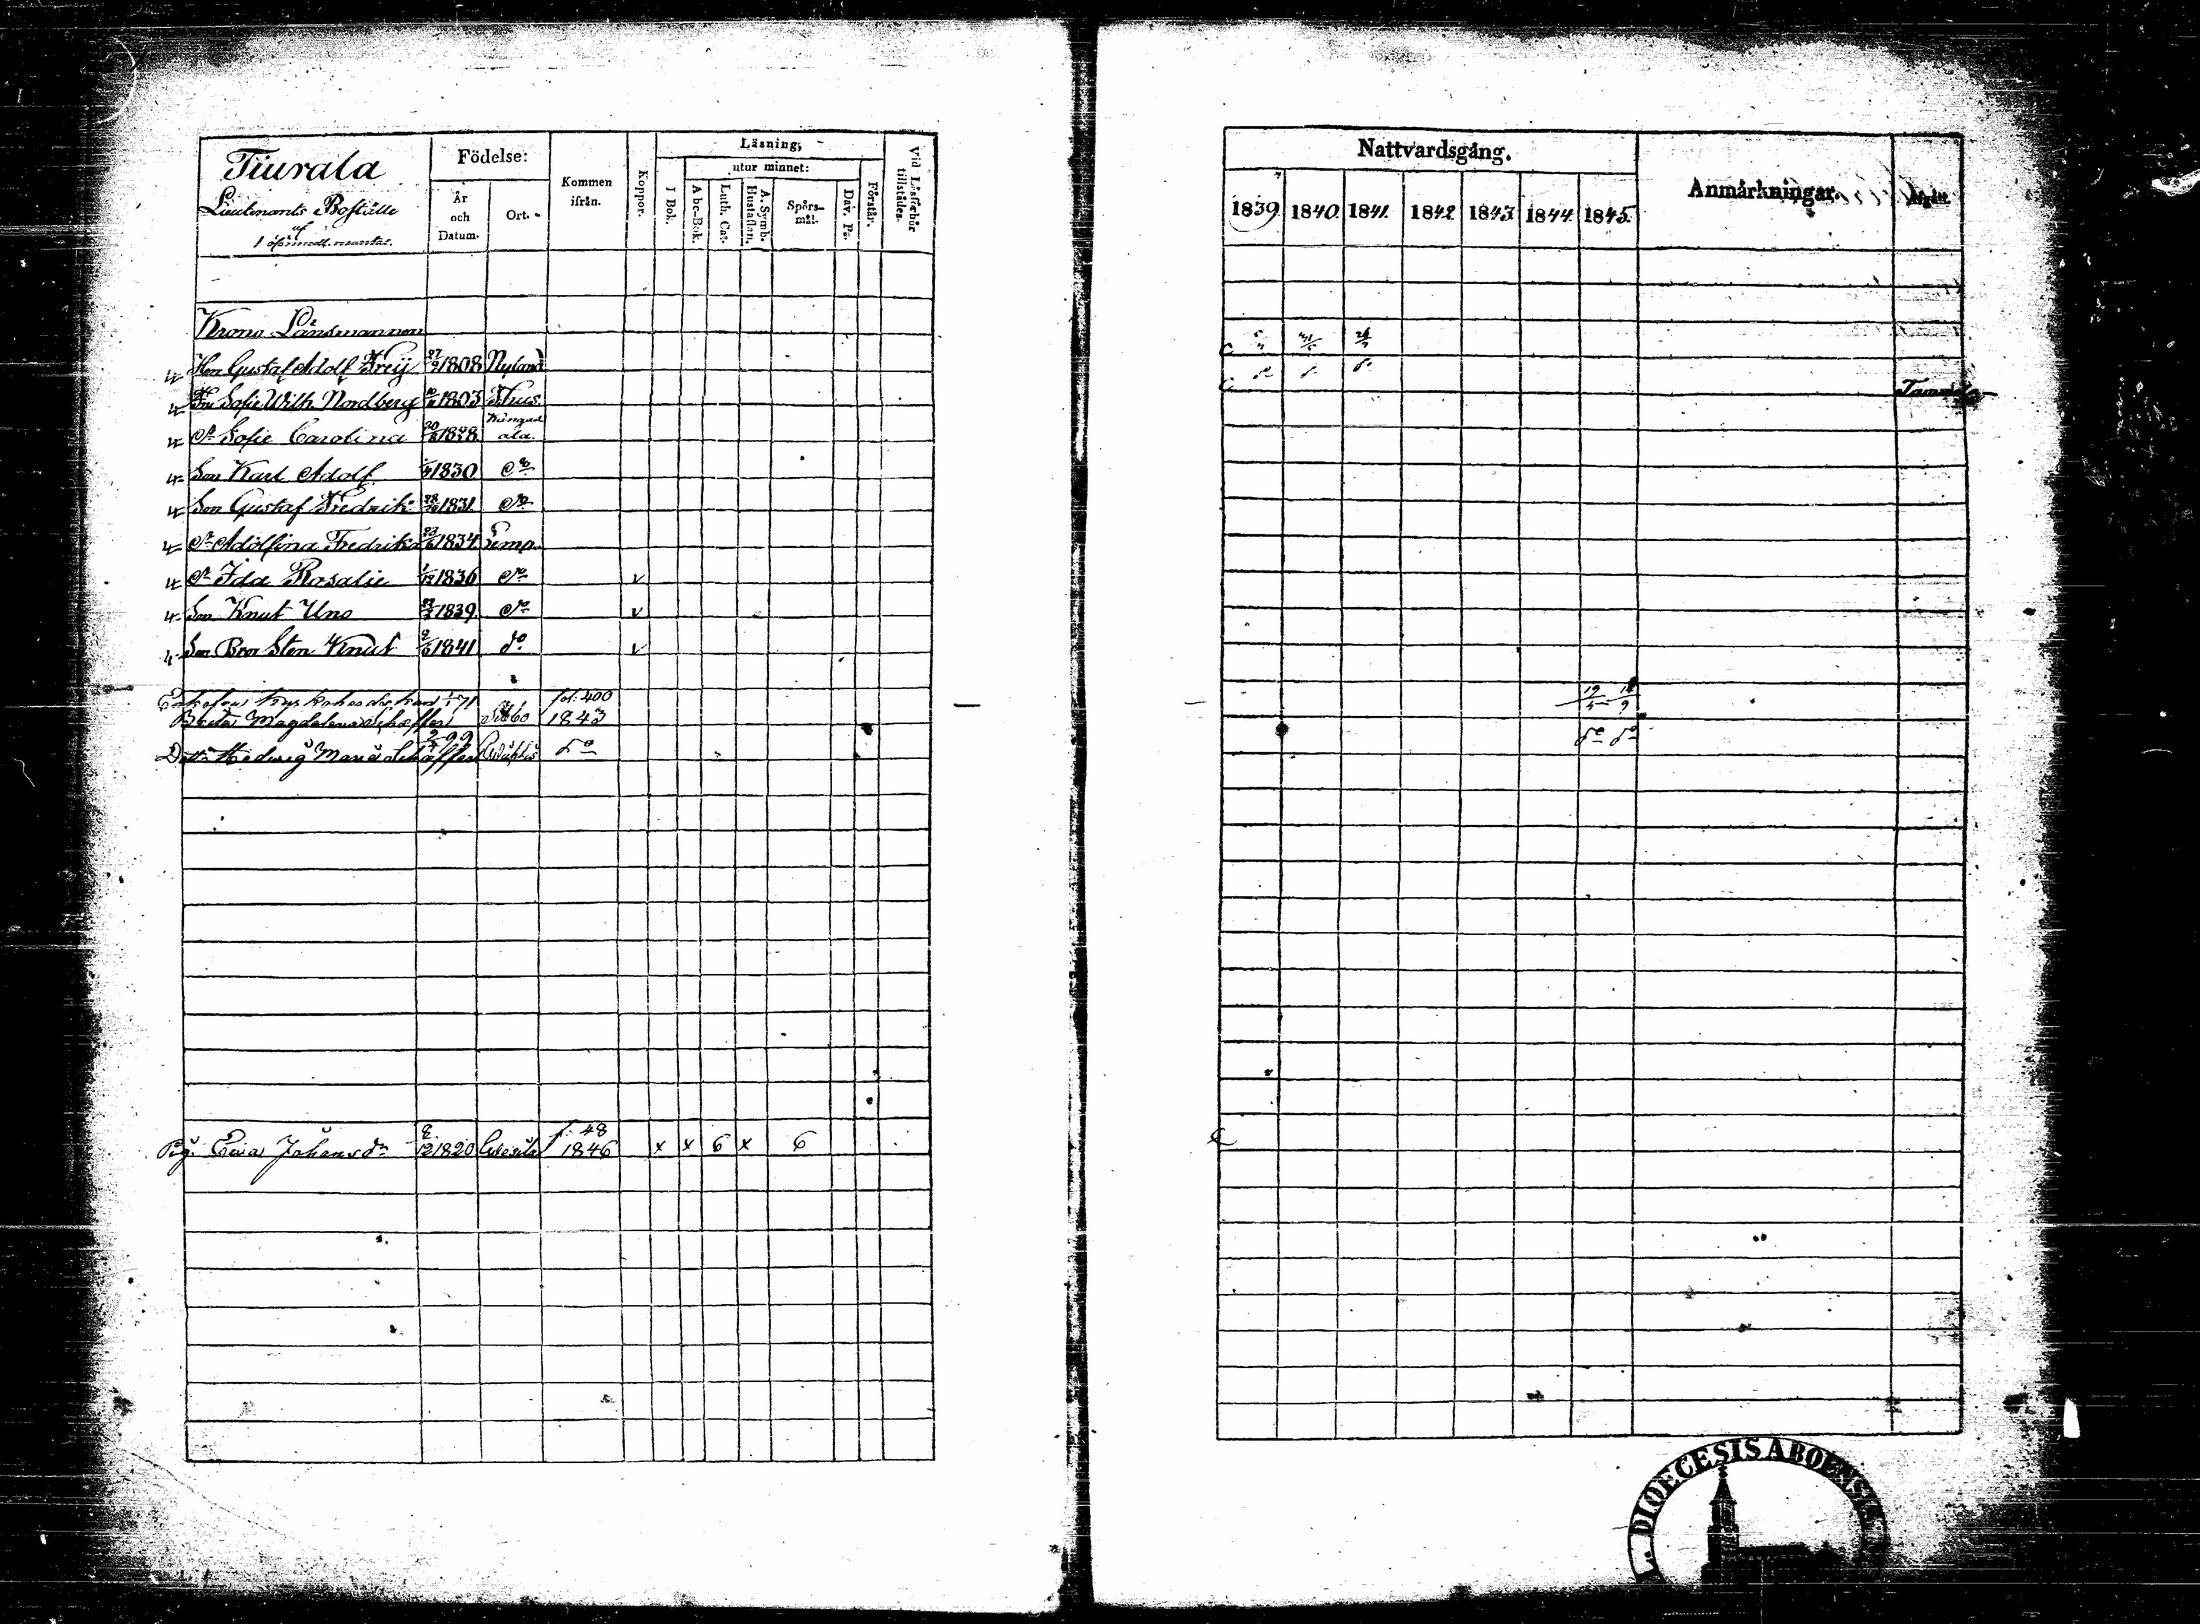 Tiurala
Lieutenants Boställe
af
Födelse:
År
och
Datum.
Ort.
Kommen
ifrån.
Koppor.
Läsning,
utur minnet:
I Bok.
Abc-Bok.
Luth. Cat.
A. Symb.
Hustaflan.
Spörs-
mål.
Dav. Ps.
Förstår.
Vid Läsförhör
tillstädes.
Krono Länsmannen
4 Herr Gustaf Adolf Freij 27/9 1808 Nyland
4 Fru Sofie Wilh. Nordberg 1803 Thus
4 Dr Sofie Carolina 20/8 1828
4 Son Karl Adolf 1830 do
4 Son Gustaf Fredrik 1831 do
4 Dr Adolfina Fredrika 1834 Lemp.
4 Dr Ida Rosalie 1/12 1836 do v
4 Son Knut Uno 1839 do v
4 Son Bror Sten Knut 1841 do v
Enkefru 71 fol. 400
Magdalena Schæffer 1843
Dottr Hedvig Maria Schæffer 99 do
Pig. Eva Johansdr 1820 f. 48 1846 x x 6 x 6
Nattvardsgång.
Anmärkningar.
1839. 1840. 1841. 1842 1843 1844. 1845.
C
C do do do
19/4 9
do do
DIOECESIS ABOENSIS